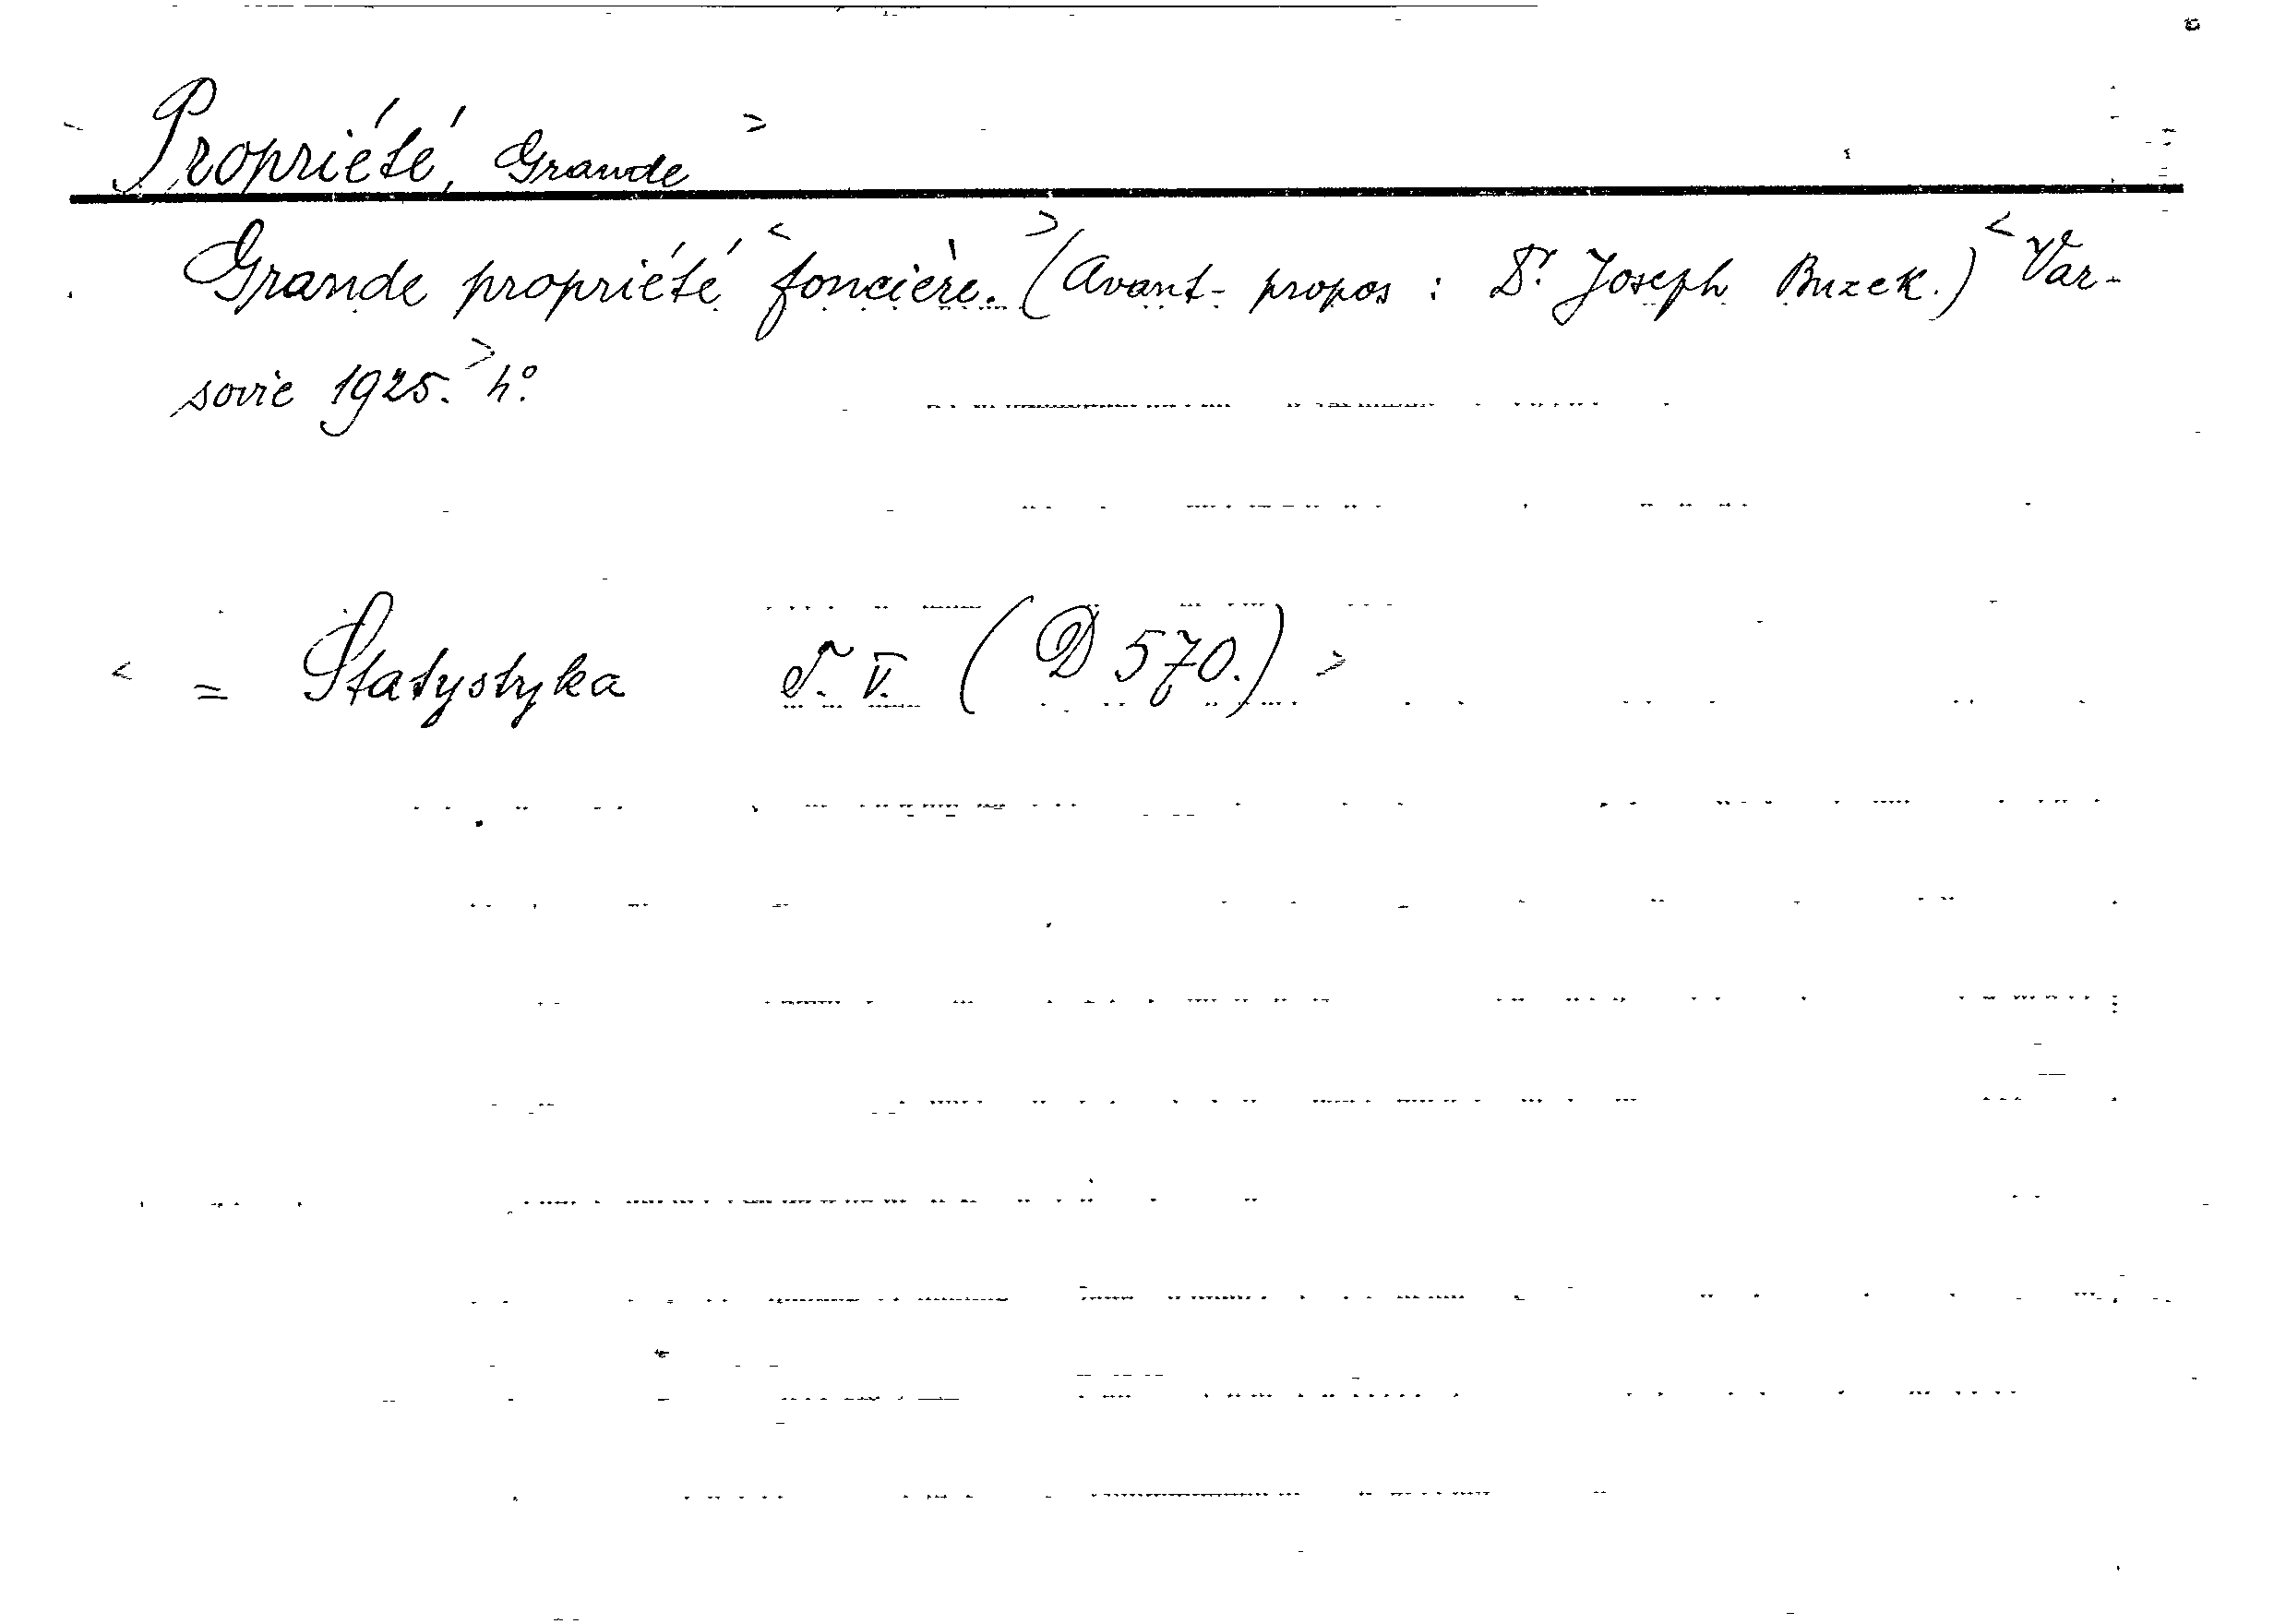 Propriété, Grande >
Grande propriété < foncière. > (Avant-propos : Dr. Joseph Buzek.) < Var-
sovie 1925. > 4°.
< = Statystyka T. V. (D 570.) >